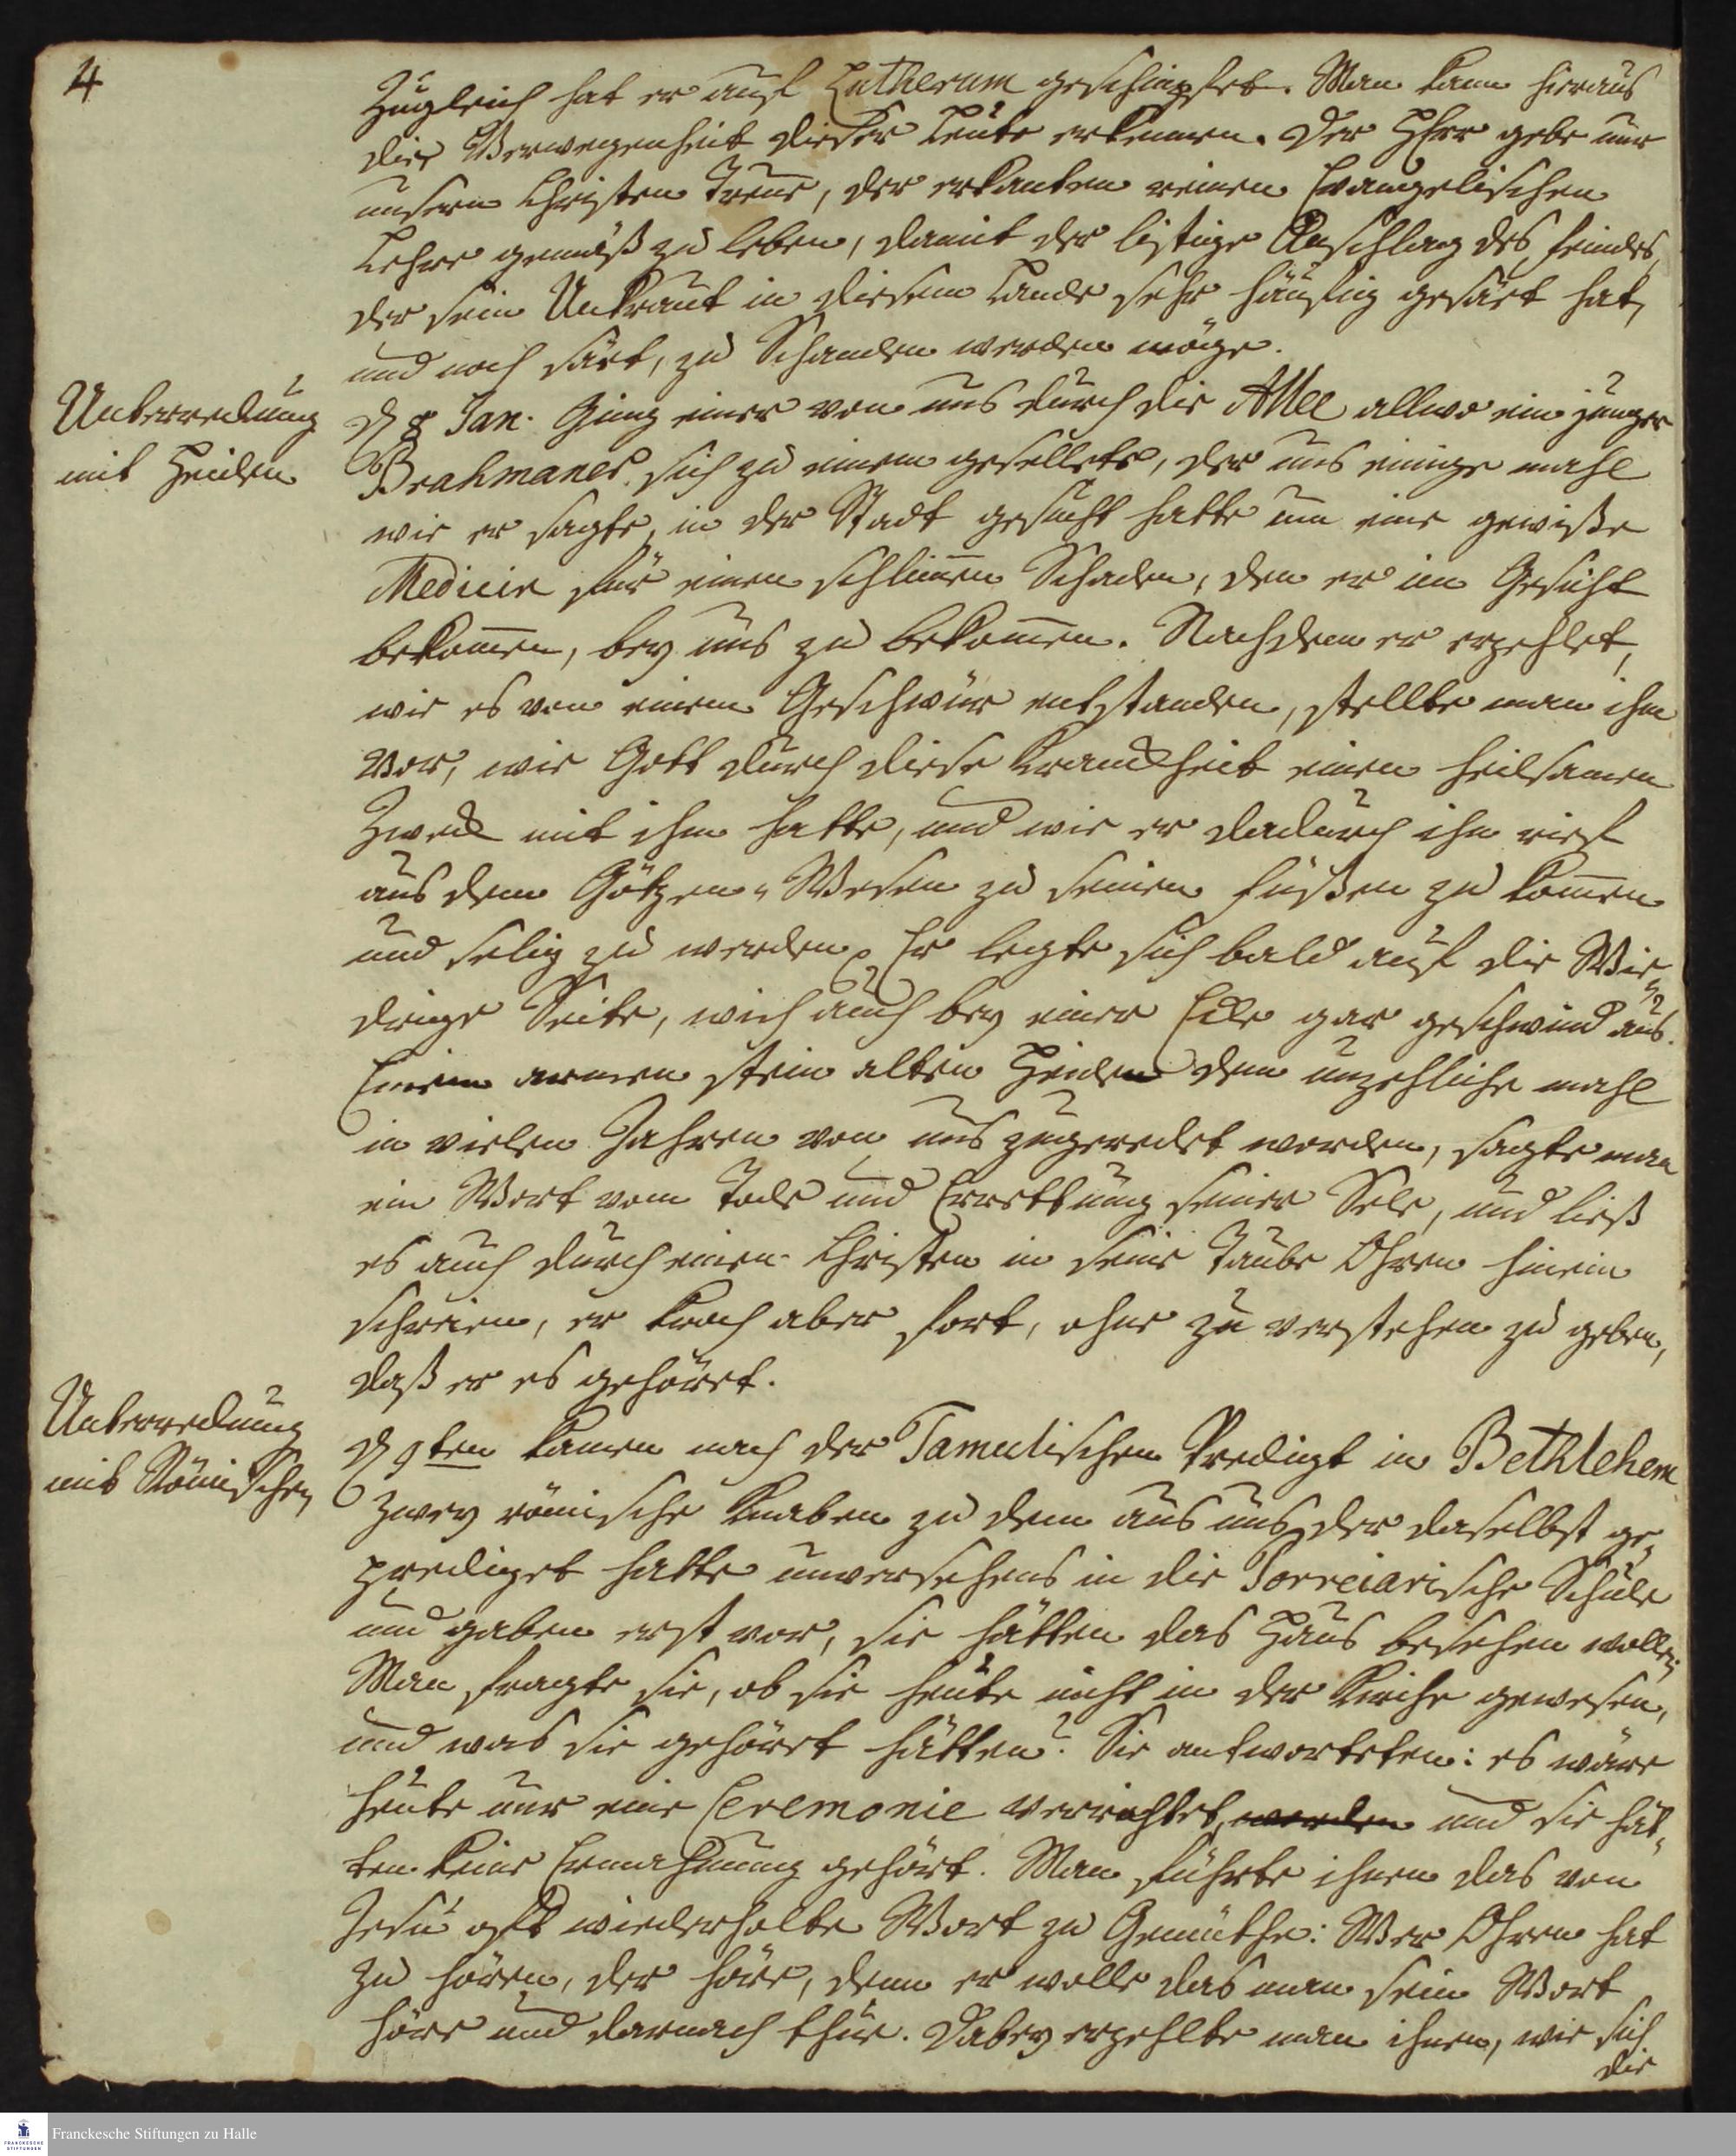 4
Zugleich hat er auf Lutherum geschimpfet. Man kann hieraus
die Verwegenheit dieser Leute erkennen. Der HErr gebe nur
unsern Christen Treue, der erkanten reinen Evangelischen
Lehre gemäß zu leben, damit der listige Anschlag des Feindes,
der sein Unkraut in diesem Lande sehr häuffig gesäet hat,
und noch säet, zu Schanden werden möge.
Unterredung
mit Heiden
D 8 Jan. Ging einer von uns durch die Allee allwo ein junger
Brahmanes sich zu einem gesellete, der uns einige mahl
wie er sagte, in der Stadt gesucht hatte um eine gewiße
Medicin für einen schlim̄en Schaden, den er im Gesicht
bekom̄en, bey uns zu bekom̄en. Nachdem er erzehlet,
wie es von einem Geschwür entstanden, stellte man ihm
vor, wie Gott durch diese Kranckheit einen heilsamen
Zweck mit ihm hatte, und wie er dadurch ihn rief
aus dem Götzen-Wesen zu seinen Füßen zu kom̄en
und selig zu werden. Er legte sich bald auf die Wie-
drige Seite, wich auch bey einer Ecke gar geschwind aus.
Einem armen stein alten Heiden dem unzehliche mahl
in vielen Jahren von uns zugeredet worden, sagte man
ein Wort vom Tode und Errettung seiner Sele, und ließ
es auch durch einen Christen in seine Taube Ohren hinein
schreien, er kroch aber fort, ohne zu verstehen zu geben,
daß er es gehöret.
Unterredung
mit Römischen
D 9ten kamen nach der Tamulischen Predigt in Bethlehem
zwey römische Knaben zu dem aus uns, der daselbst ge-
prediget hatte unversehens in die Porreiarische Schule
und gaben erst vor, sie hätten das Haus besehen wollen;
Man fragte sie, ob sie heute nicht in der Kirche gewesen,
und was sie gehöret hätten? Sie antworteten: es wäre
heute nur eine Ceremonie verrichtet, worden und sie hät-
ten keine Ermahnung gehört. Man führte ihnen das von
Jesu oft wiederholte Wort zu Gemüthe: Wer Ohren hat
zu hören, der höre, denn er wolle das man sein Wort
höre und darnach thue. Dabey erzehlte man ihnen, wie sich
die
Franckesche Stiftungen zu Halle